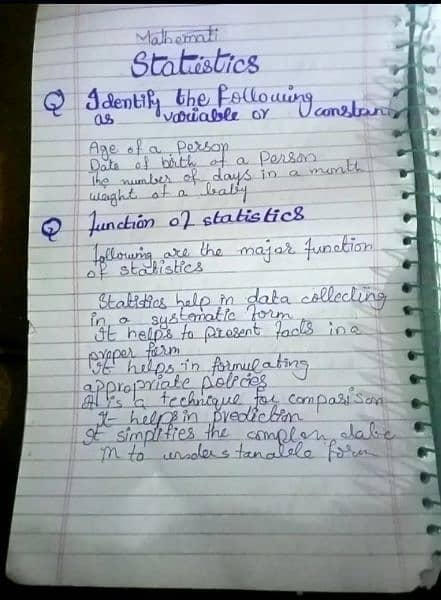 Mathemati
Statistics
Q Identify the following
as variable or constan
Age of a Person
Date of birth of a Person
The number of days in a month
weight of a baby
Q function of statistics
following are the major function
of statistics
Statistics help in data collecting
in a systematic form
it helps to present facts in a
proper form
it helps in formulating
appropriate policies
It is a technique for comparison
It helps in prediction
It simplifies the complex data
in to understanable form